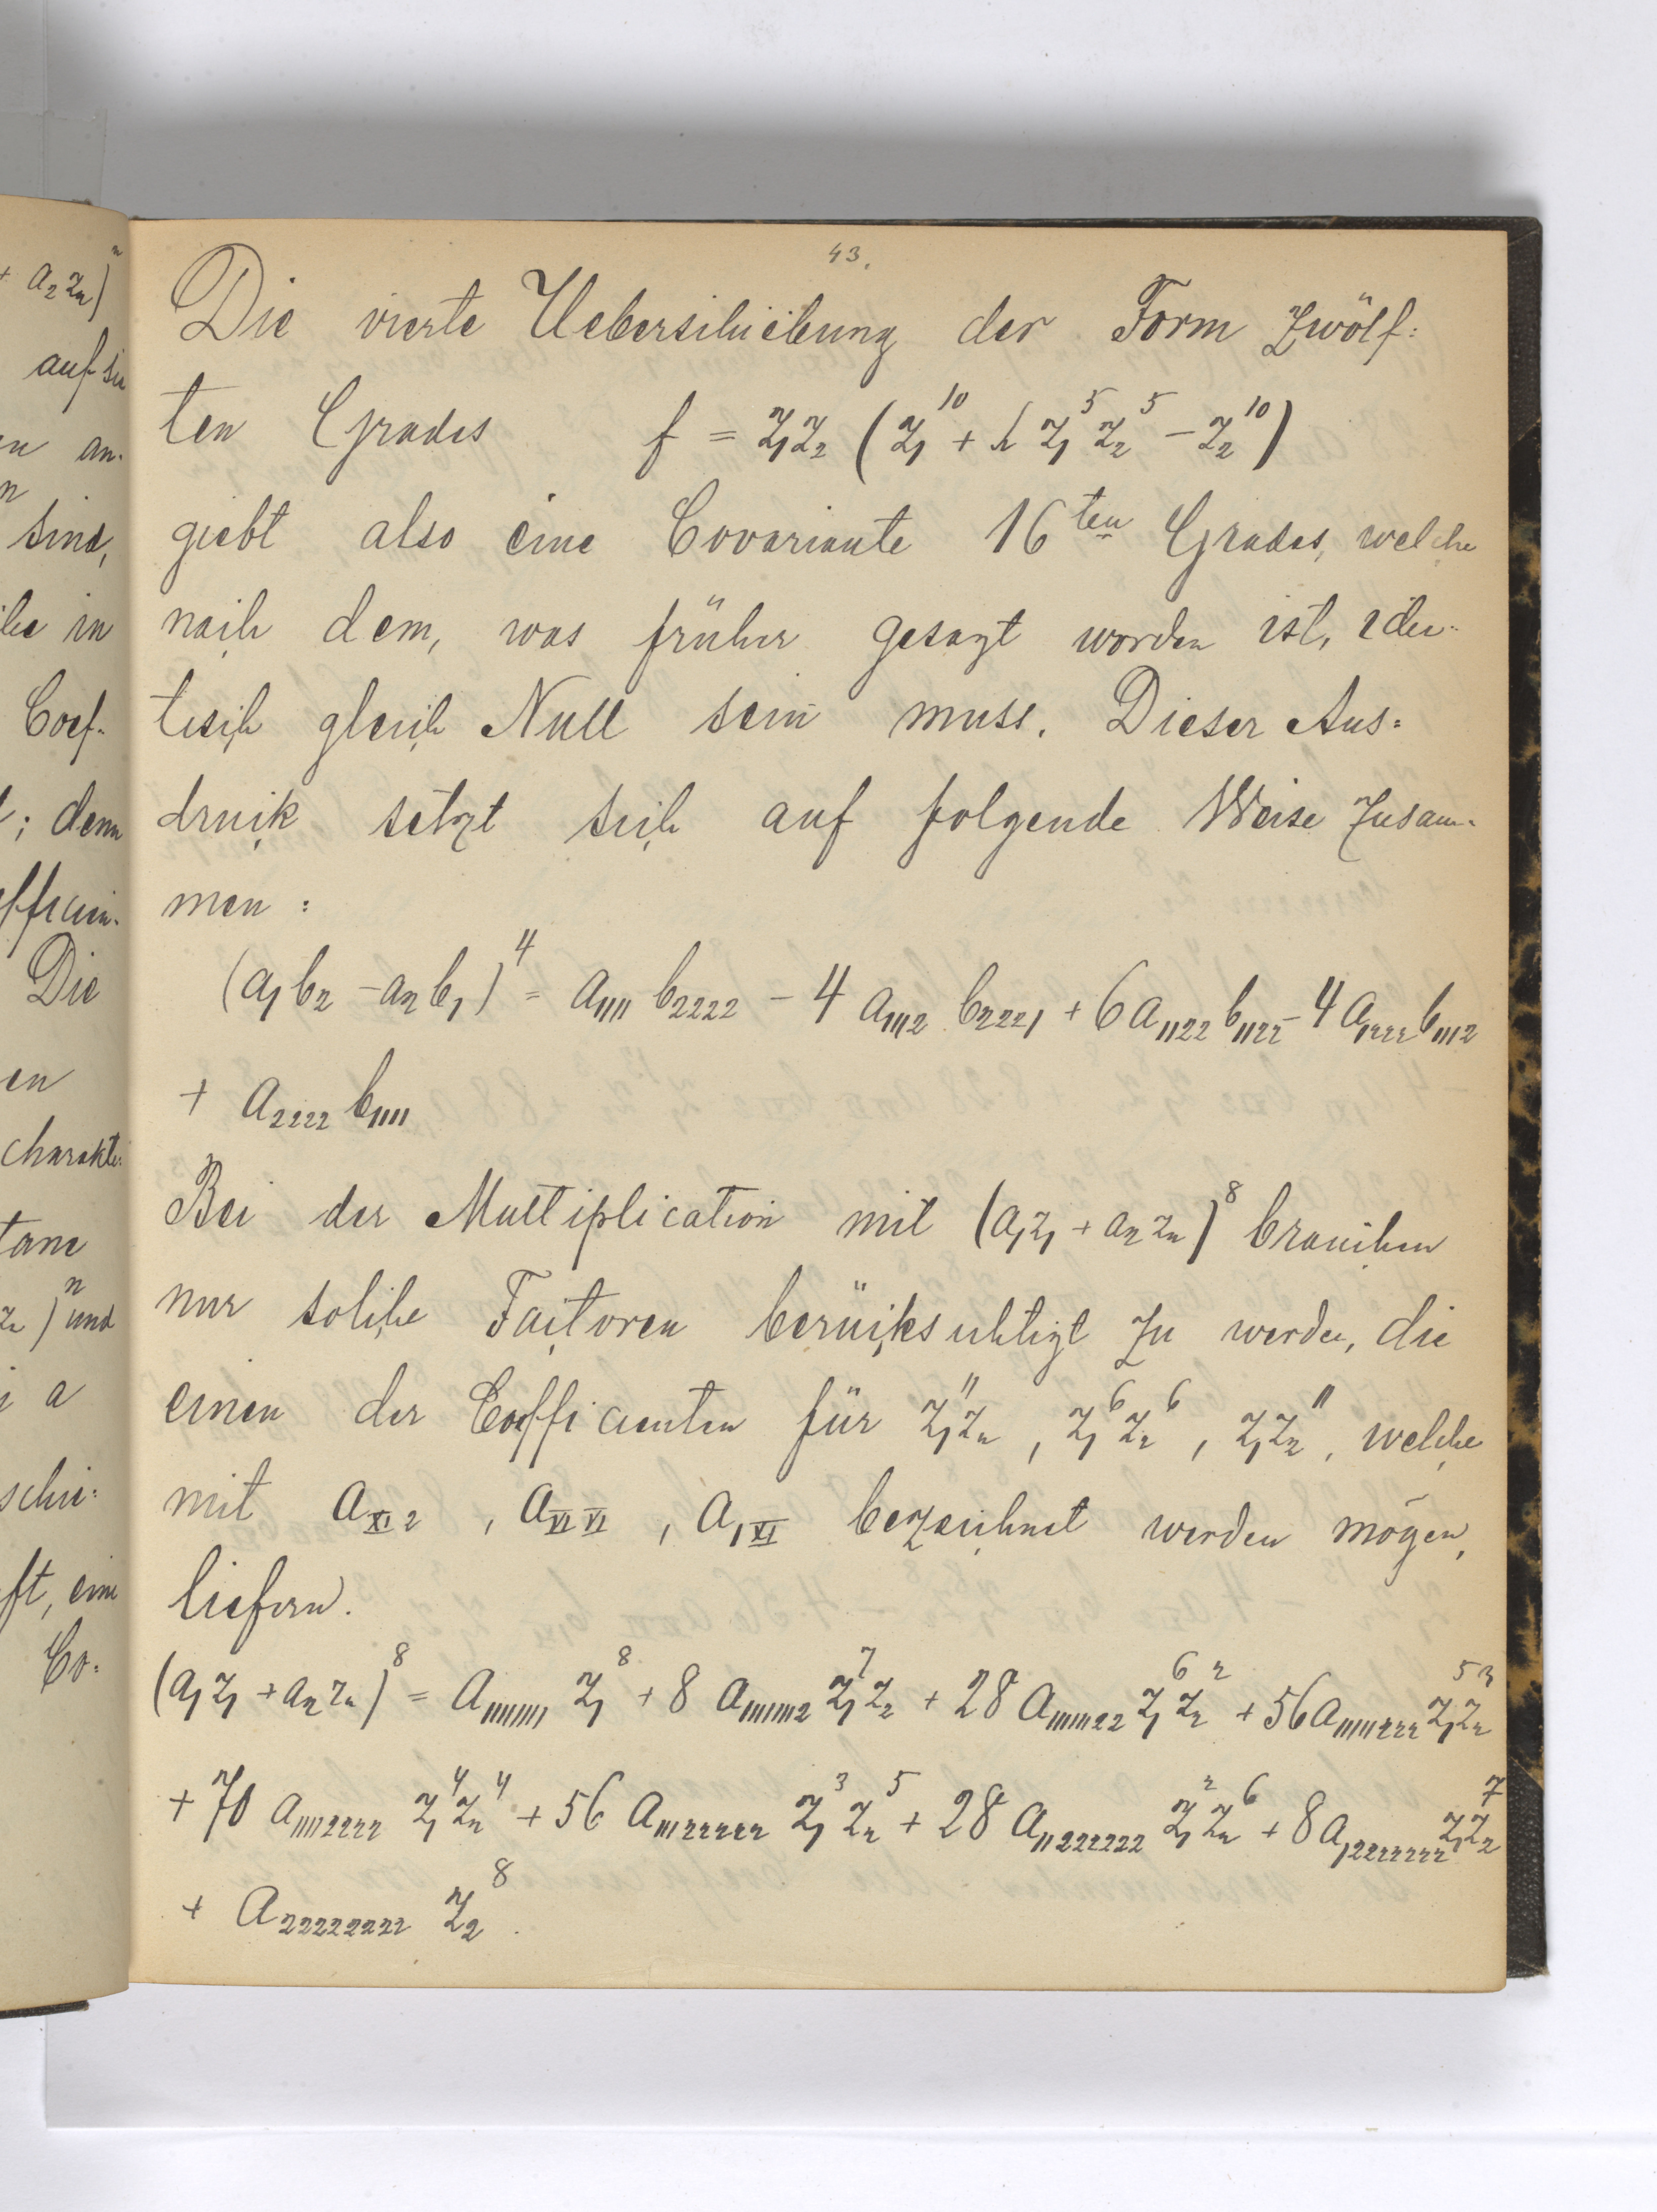 + a₂z₂)ⁿ
auf die
en an-
sind,
in
Coef-
; denn
Die
en
charakte-
und
a
schie-
eine
Co-
43.
Die vierte Ueberschiebung der Form zwölf-
ten Grades f = z₁z₂ (z₁¹⁰ + h z₁⁵ z₂⁵ − z₂¹⁰)
giebt also eine Covariante 16ten Grades, welche
nach dem, was früher gesagt worden ist, iden-
tisch gleich Null sein muss. Dieser Aus-
druck setzt sich auf folgende Weise zusam-
men :
(a₁b₂ − a₂b₁)⁴ = a₁₁₁₁ b₂₂₂₂ − 4 a₁₁₁₂ b₂₂₂₁ + 6 a₁₁₂₂ b₁₁₂₂ − 4 a₁₂₂₂ b₁₁₁₂
+ a₂₂₂₂ b₁₁₁₁
Bei der Multiplication mit (a₁z₁ + a₂z₂)⁸ brauchen
nur solche Factoren berücksichtigt zu werden, die
einen der Coefficienten für z₁¹¹z₂ , z₁⁶z₂⁶ , z₁z₂¹¹ , welche
mit a_XI 2 , a_VI VI , a_1 XI bezeichnet werden mögen,
liefern.
(a₁z₁ + a₂z₂)⁸ = a₁₁₁₁₁₁₁₁ z₁⁸ + 8 a₁₁₁₁₁₁₁₂ z₁⁷z₂ + 28 a₁₁₁₁₁₁₂₂ z₁⁶z₂² + 56 a₁₁₁₁₁₂₂₂ z₁⁵z₂³
+ 70 a₁₁₁₁₂₂₂₂ z₁⁴z₂⁴ + 56 a₁₁₁₂₂₂₂₂ z₁³z₂⁵ + 28 a₁₁₂₂₂₂₂₂ z₁²z₂⁶ + 8 a₁₂₂₂₂₂₂₂ z₁z₂⁷
+ a₂₂₂₂₂₂₂₂ z₂⁸ .